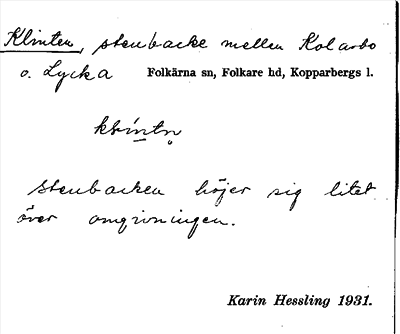 Klinten, stenbacke mellan Kolarbo
o. Lycka Folkärna sn, Folkare hd, Kopparbergs l.
stenbacken höjer sig litet
över omgivningen.
Karin Hessling 1931.